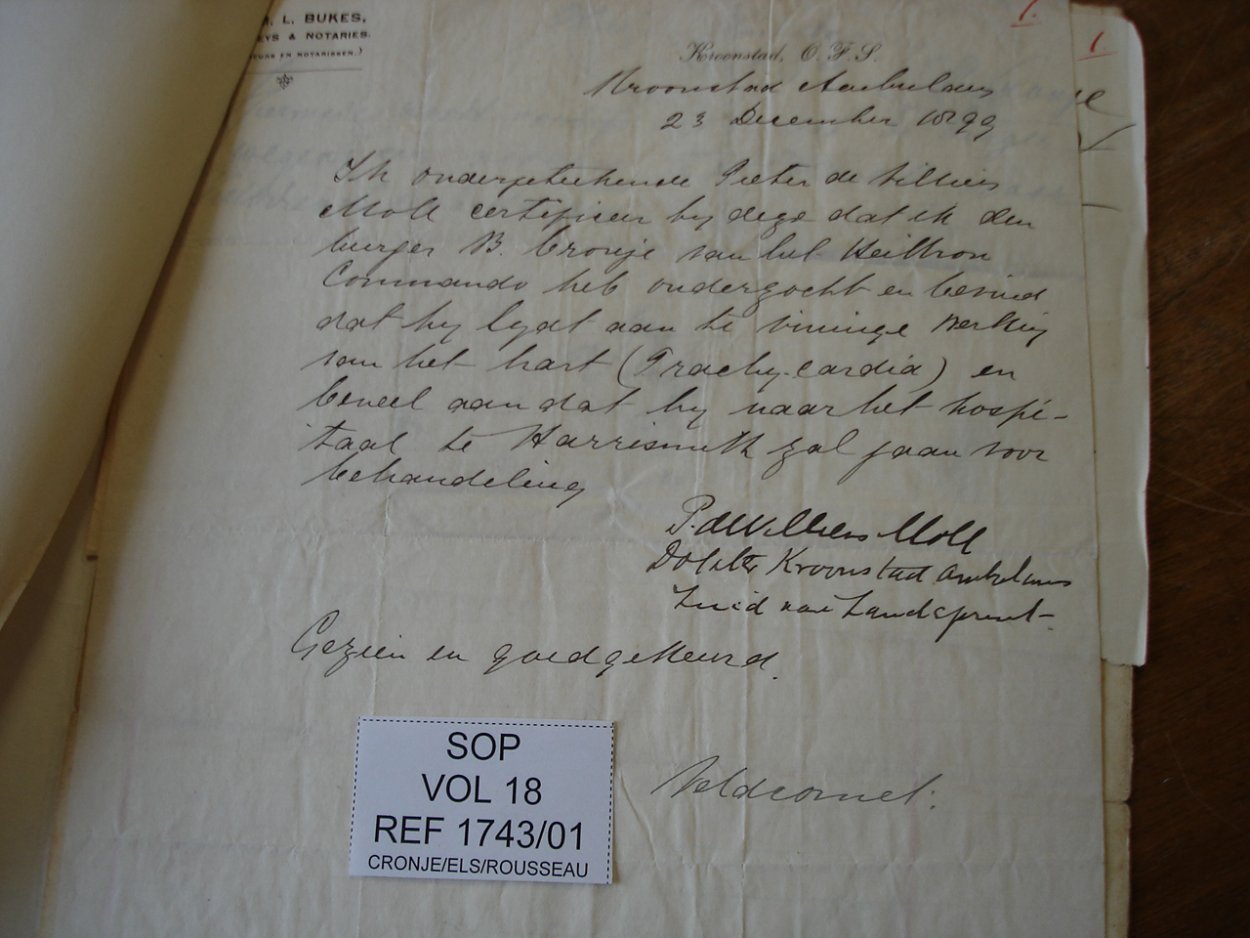 L. BUKES,
& NOTARIES.
EN NOTARISSEN.)
1.
1.
Kroonstad, O. F. S.
Kroonstad Ambulans
23 December 1899
Ik ondergetekende Pieter de Villiers
Moll certificeer by deze dat ik den
burger B. Cronje van het Heilbron
Commando heb onderzocht en bevind
dat hy lydt aan te vinnige werking
van het hart (Trachy-cardia) en
beveel aan dat hy naar het hospi-
taal te Harrismith zal gaan voor
behandeling
P. deVilliers Moll
Dokter Kroonstad Ambulans
Zuid van Landsprint
Gezien en goedgekeurd.
Veldcornet.
SOP
VOL 18
REF 1743/01
CRONJE/ELS/ROUSSEAU